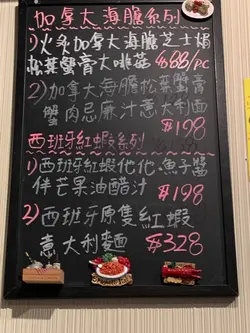 加拿大海膽系列
1)火炙加拿大海膽芝士焗
松葉蟹膏大啡菇 $88/pc
2)加拿大海膽松葉蟹膏
蟹肉忌廉汁意大利面
$198
西班牙紅蝦系列
1)西班牙紅蝦他他魚子醬
伴芒果油醋汁 $198
2)西班牙原隻紅蝦
意大利麵 $328